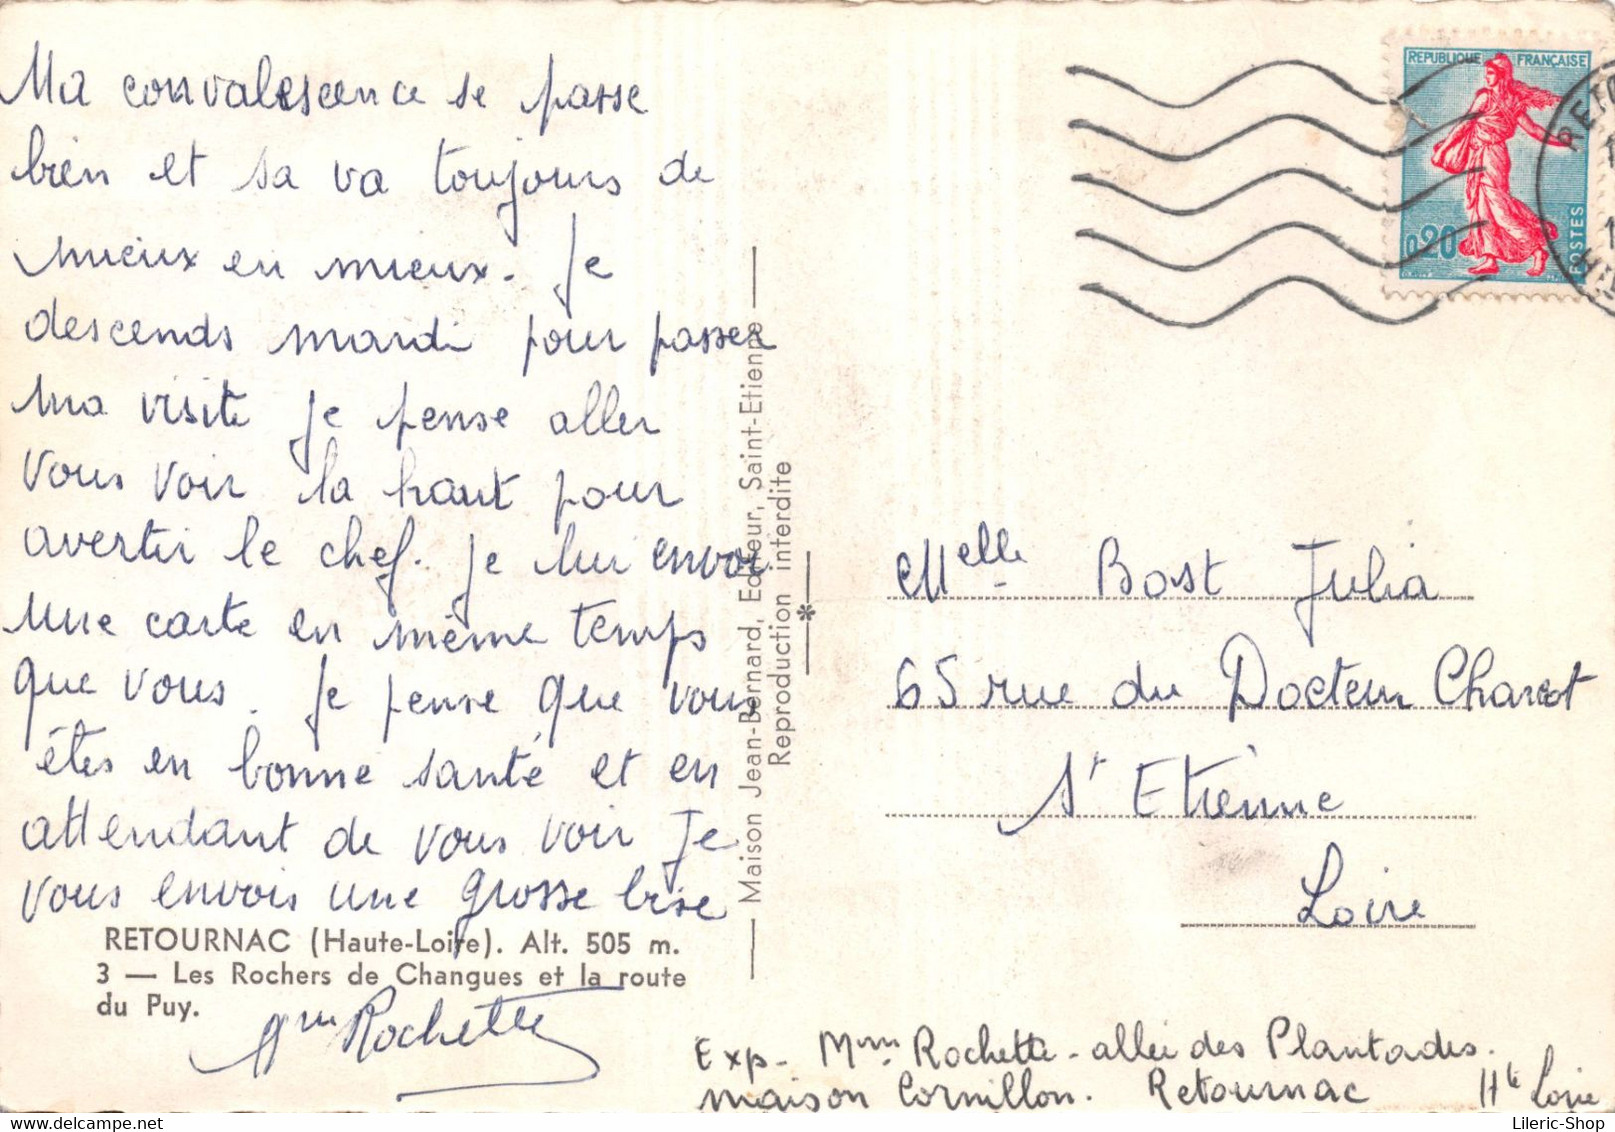 Ma convalescence se passe
bien et sa va toujours de
mieux en mieux. Je
descends mardi pour passer
ma visite je pense aller
vous voir la haut pour
avertir le chef. Je lui envoi
une carte en même temps
que vous. Je pense que vous
êtes en bonne santé et en
attendant de vous voir Je
vous envois une grosse bise
RETOURNAC (Haute-Loire). Alt. 505 m.
3 — Les Rochers de Changues et la route
du Puy.
Mme Rochette
Maison Jean-Bernard, Editeur, Saint-Etienne
Reproduction interdite
REPUBLIQUE FRANÇAISE
0,20
POSTES
Melle Bost Julia
65 rue du Docteur Charcot
St Etienne
Loire
Exp - Mme Rochette - allée des Plantades.
maison Cornillon. Retournac Hte Loire
Lileric-Shop